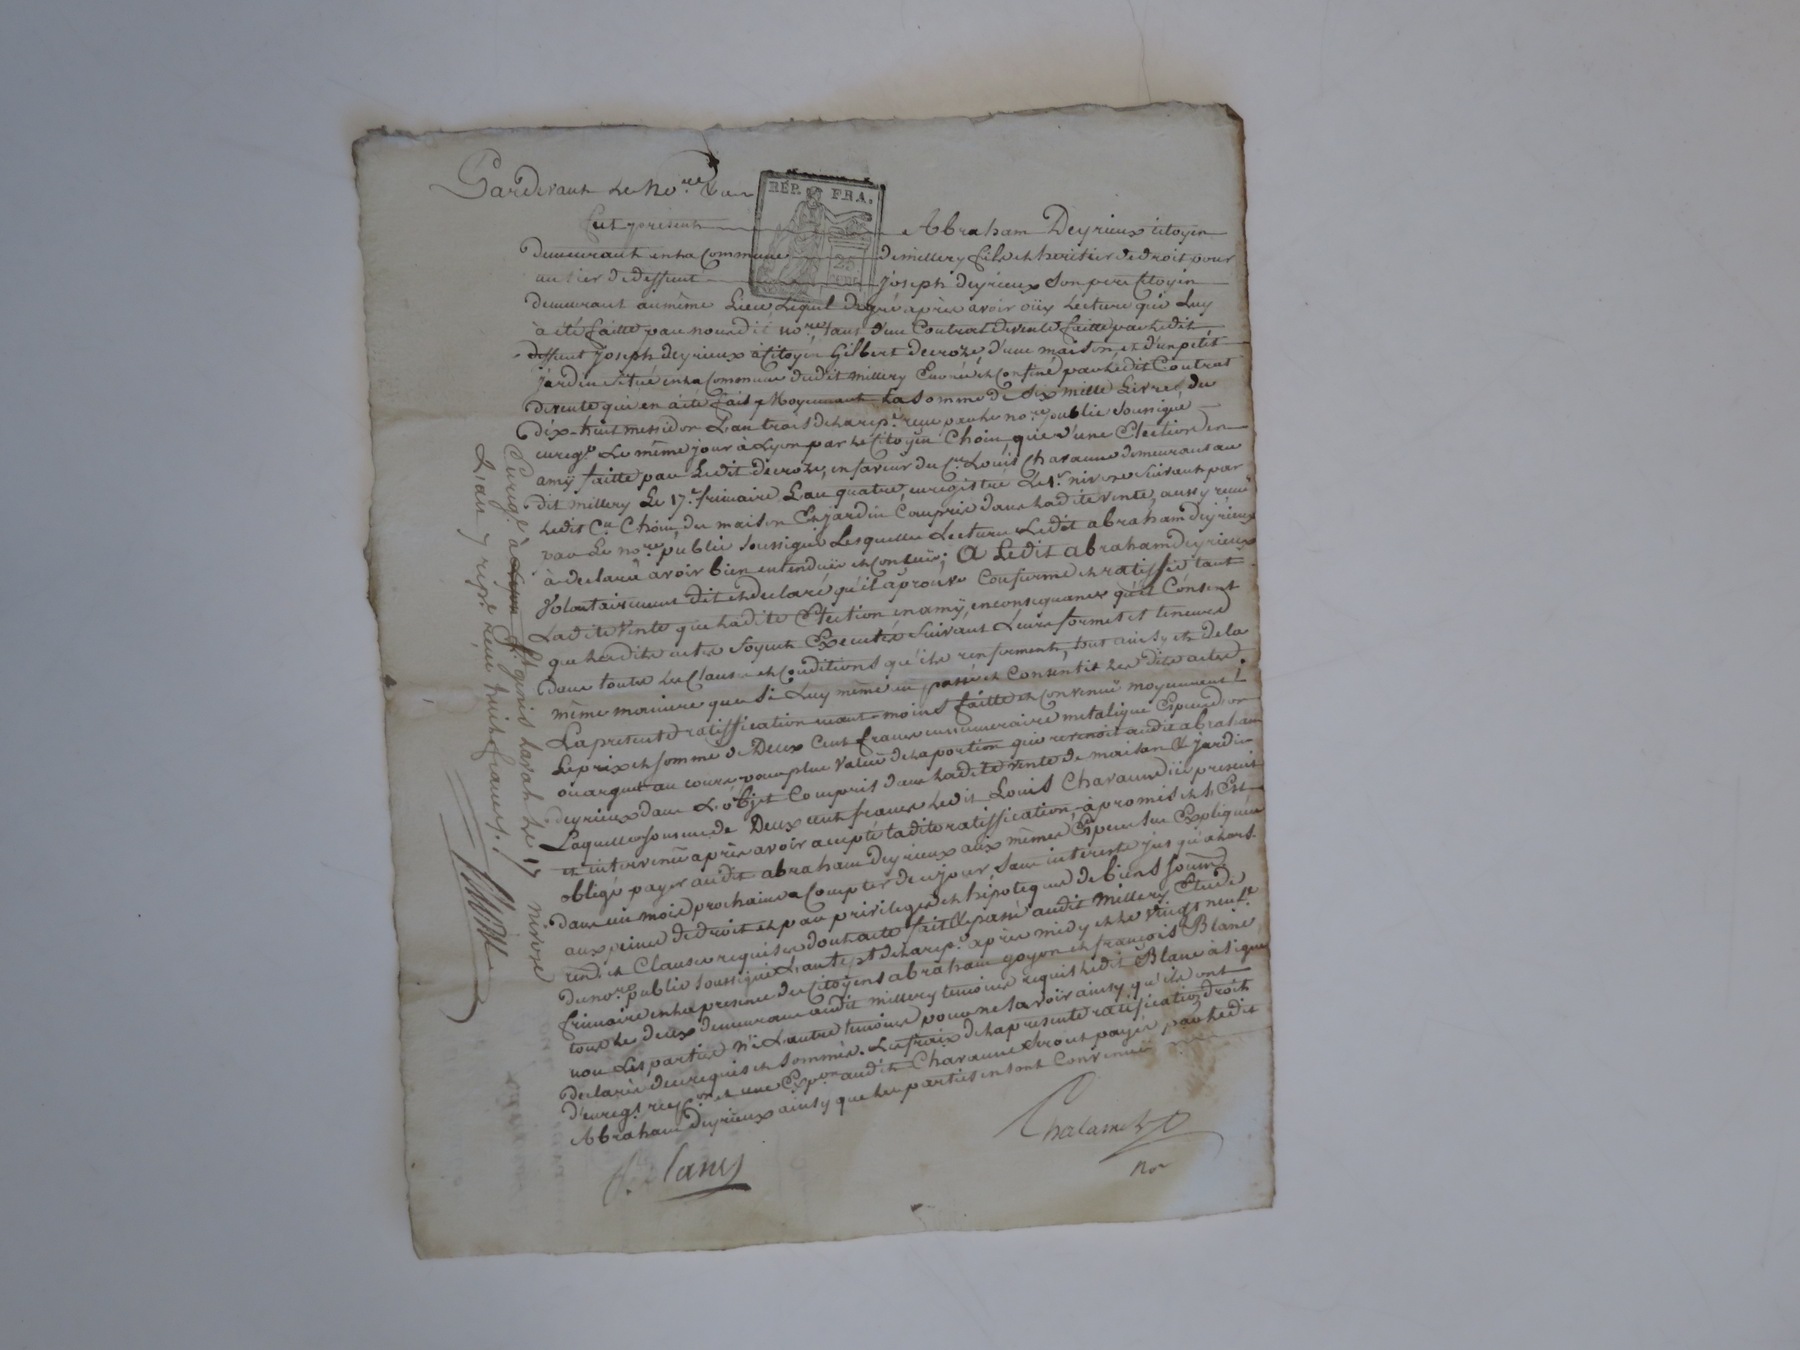 Pardevant Le No.re
REP. FRA.
25
CENT.
fut présent Abraham Deyrieux citoyen
demeurant en la Commune de millery fils et heritier de droit pour
un tier de deffunt Joseph deyrieux Son pere Citoyen
demeurant au même Lieu Lequel de gré après avoir oüy Lecture que Luy
à été faitte par nous dit no.re tant d'un Contrat de vente faitte par Ledit
deffunt Joseph deyrieux à Citoyen Gilbert decroze d'une maison et d'un petit
jardin situé en la Commune dudit millery Enoncé et Confiné par Ledit Contrat
de vente qui en à été fait Moyennant La somme de six mille Livres du
dix-huit messidor L'an trois de la rep.e recu par Le no.re public soussigné
enreg.é Le même jour à Lyon par Le Citoyen Choin, que d'une Election en
amÿ faitte par Ledit decroze, en faveur du C.en Louis Chavanne demeurant au
dit millery Le 17.e frimaire L'an quatre, enregistré Le 1.er nivose suivant par
Ledit C.en Choin, du maison Et jardin Compris dans Ladite vente, aussy recu
par Le no.re public soussigné Lesquelles Lecture Ledit abraham deyrieux
à declaré avoir bien entendües et Concües; A Ledit abraham deyrieux
Volontairement dit et declaré qu'il aprouve Confirme et ratiffie tant
Ladite vente que Ladite Election en amÿ, en consequance qu'il Consent
que Lesdits actes soyent Executés suivant Leurs formes et teneures
dans toutes Les Clauses et Conditions qu'ils renferment, tout ainsy et de la
même maniere que si Luy même eu passé et Consentit Les dits actes.
La presente ratiffication neant-moins faitte et Convenüe moyennant
Le prix et somme de Deux Cent francs en numeraire metalique Espece d'or
ou argent au cours, pour plus Valüe de la portion qui revenoit audit abraham
deyrieux dans L'objet Compris dans Ladite vente de maison & jardin
Laquelle somme de Deux cent francs Ledit Louis Chavanne icÿ present
et intervenü après avoir accepté Ladite ratiffication, à promis et s'Est
obligé payer audit abraham deyrieux aux mêmes Especes sus Expliquées
dans un mois prochain a Compter de ce jour, sans interests jusqu'alors
aux peines de droit et par privilege et hipoteque de biens soumis
rend. et Clauses requises dont acte fait & passé audit millery Etude
du no.re public soussigné L'an sept de la rep.e après midy et Le vingt neuf.e
frimaire en la presence des Citoyens abraham goyon et françois Blanc
tous Les deux demeurans audit millery temoins requis Ledit Blanc à signé
non Les parties n'i L'autre temoins pour ne savoir ainsy qu'ils ont
declarés de ce requis et sommés. Les fraix de la presente ratiffication droit
d'enregt. et une Exp.on audit Chavanne seront payés par Ledit
Abraham Deyrieux ainsy que Les parties en sont Convenües
Chalamel
No.re
Blanc
Enreg.é à Lyon St. genis Laval Le 17 nivose
L'an 7 rep.e Reçu huit francs.